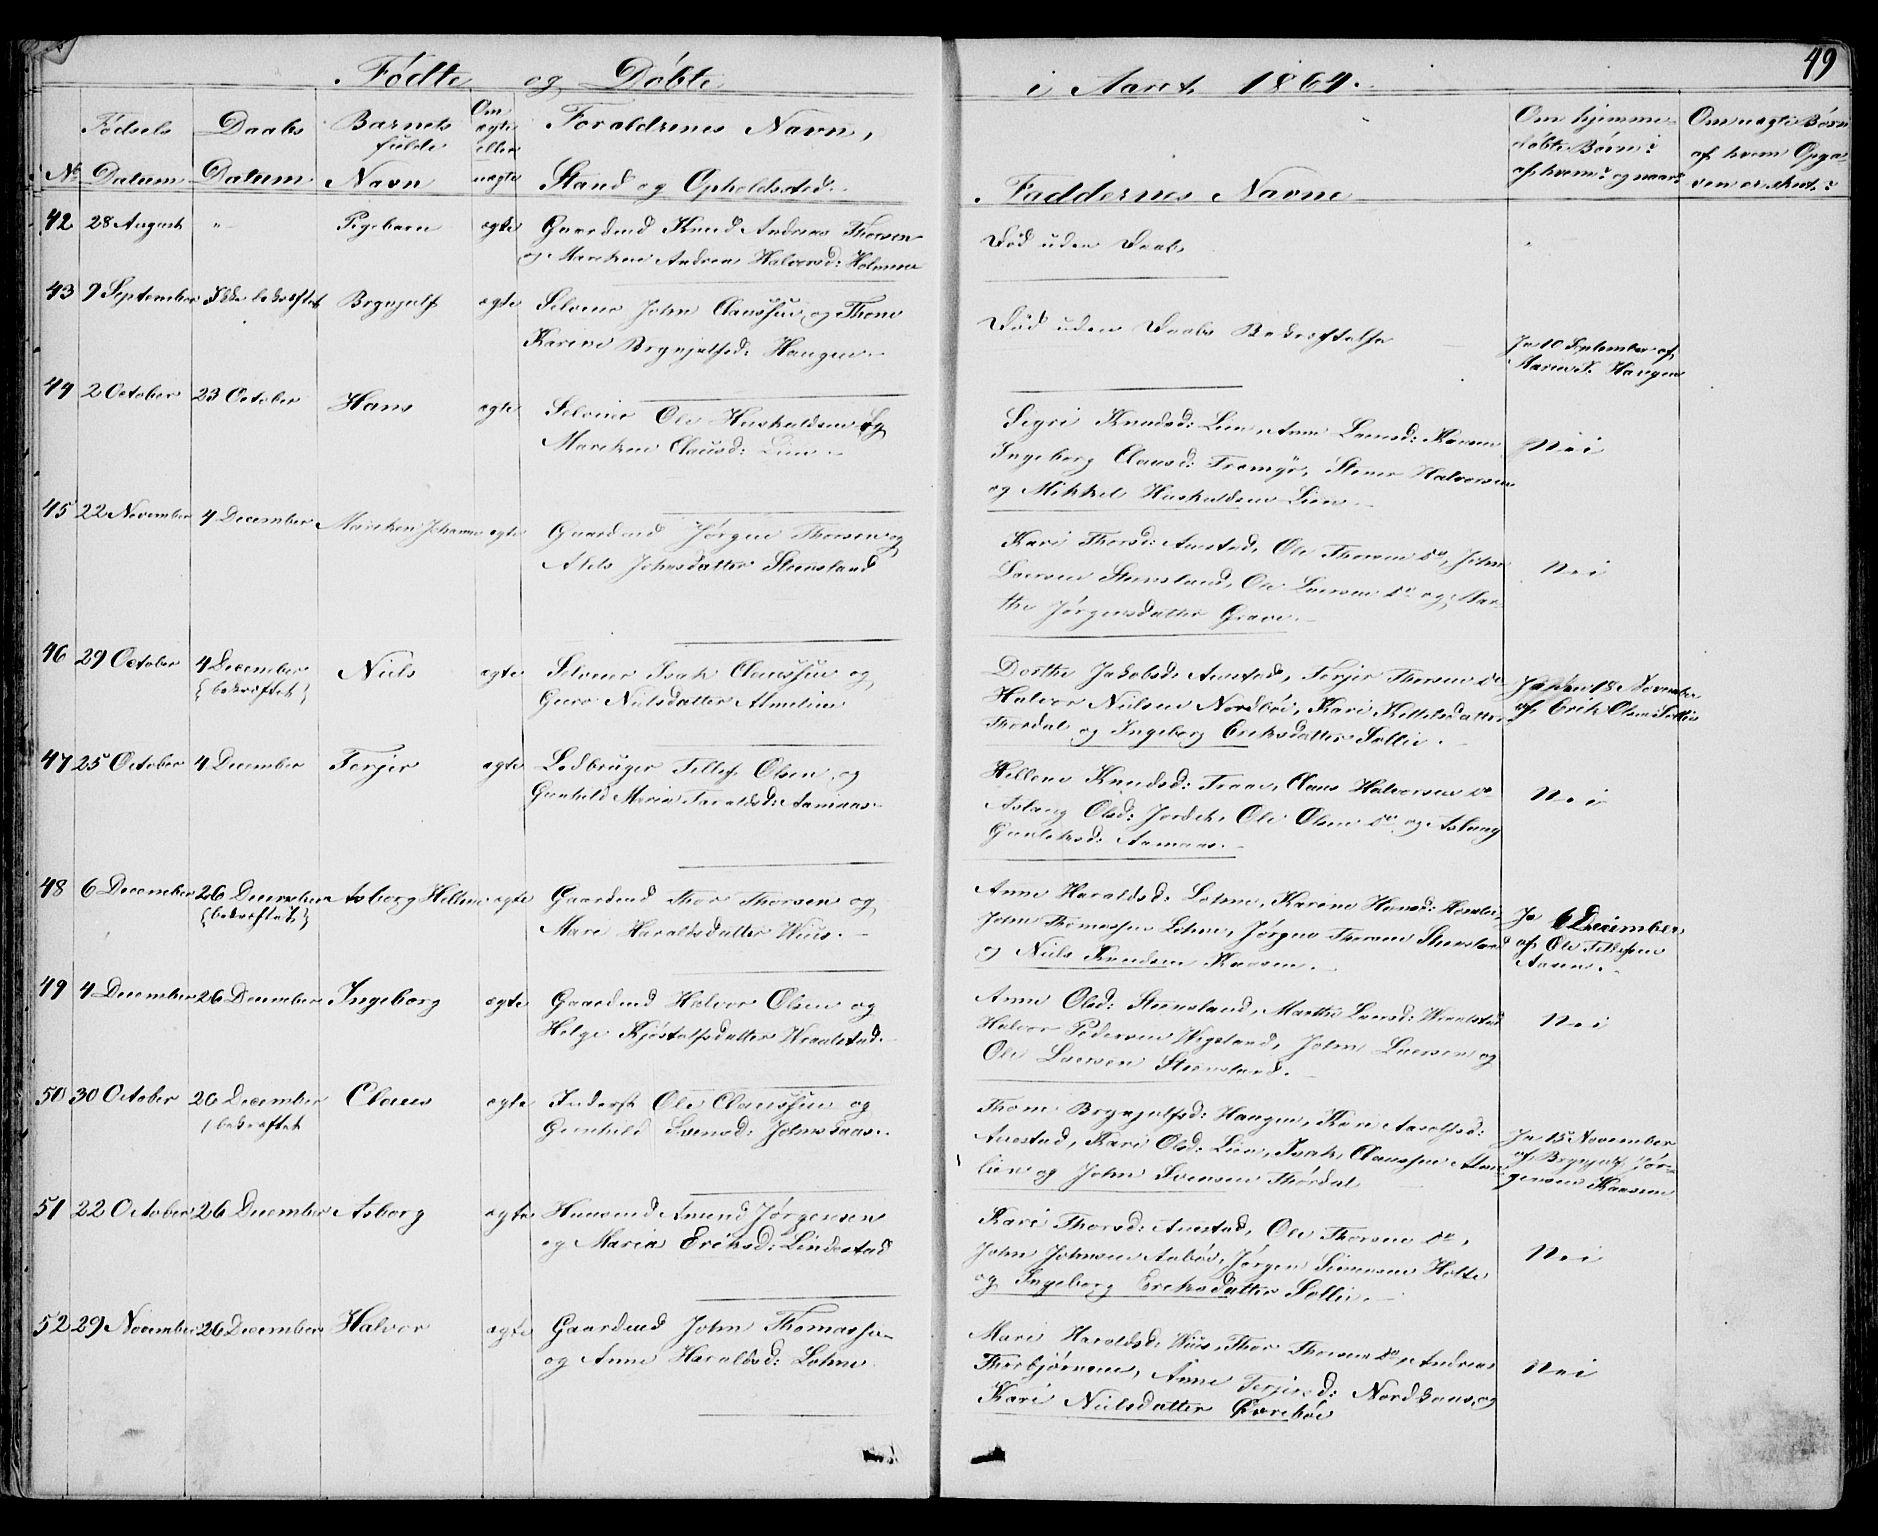 49
Fødte og Døbte i Aaret 1864.
No
Fødsels Datum
Daabs Datum
Barnets fulde Navn
Om ægte eller uægte
Forældrenes Navn,
Stand og Opholdssted.
Faddernes Navne
Om hjemme-
døbte Børn?
af hvem? og naar?
Om uægte Børn
af hvem Opga-
ven er skeet?
42 28 August " Pigebarn ægte Gaardmd Knud Andreas Thorsen
og Marichen Andrea Halvorsd: Holmene
Død uden Daab,
43 9 September Ikke bekræftet Brynjulf ægte Selveier John Claussen og Thone
Karine Brynjulfsd: Haugen
Død uden Daabs Bekræftelse
Ja 10 September af
Haugen
44 2 October 23 October Hans ægte Selveier Ole Huskuldsen og
Marichen Clausd: Lien
Sigri Knudsd: Lien, Anne
Ingeborg Clausd: Tramyr, Stener Halvorsen
og Mikkel Huskuldsen Lien.
Nei
45 22 November 4 December Marichen Johanne ægte Gaardmd Jørgen Thorsen og
Alets Johnsdatter Steensland
Kari Thorsd: Austad, Ole Thorsen do, John
Loersen Steensland, Ole Loersen do og Mar-
the Jørgensdatter Grave.
Nei
46 29 October 4 December
{bekræftet}
Niels ægte Selveier Isak Claussen og
Guro Nielsdatter Almelien
Dorthe Jakobsd: Austad, Terjer Thorsen do
Halvor Nielsen Nordbø, Kari Kittelsdatter
Thordal og Ingeborg Eriksdatter Sollie.
Ja den 18 November
af Erik Olsen Sollie
47 25 October 4 December Terjer ægte Ledbruger Tellef Olsen og
Gunhild Maria Taraldsd: Aamaas
Hellene Knudsd: Traae, Claus Halvorsen do
Aslaug Olsd: Jordet, Ole Olsen do og Aslaug
Gunleksd: Aamaas.
Nei
48 6 December 26 December
{bekræftet}
Asborg Hellene ægte Gaardmd Thor Thorsen og
Mari Haraldsdatter Wiis.
Anne Haraldsd: Lohne, Karine Hansd:
John Thomassen Lohne, Jørgen Thorsen Steensland
og Niels Knudsen Kaasen.
Ja 6 December
af Ole Tellefsen
Aasen.
49 4 December 26 December Ingeborg ægte Gaardmd Halvor Olsen og
Helge Kjøstolfsdatter Wraalstad.
Anne Olsd: Steensland, Marthe Loersd: Wraalstad
Halvor Pedersen Wegsland, John Loersen og
Ole Loersen Steensland.
Nei
50 30 October 26 December
bekræftet
Claus ægte Inderst Ole Claussen og
Gunhild Svensd: Johnsaas.
Thone Brynjulfsd: Haugen, Kari Aasolfsd:
Austad, Kari Olsd: Lien, Isak Claussen Alme-
lien og John Svensen Thordal
Ja 15 November
af Brynjulf Jør-
gensen Kaasen
51 22 October 26 December Asborg ægte Huusmd Amund Jørgensen
og Maria Eriksd: Lindestad
Kari Thorsd: Austad, Ole Thorsen do,
John Johnsen Aabøe, Jørgen Simensen Holte
og Ingeborg Eriksdatter Sollie.
Nei
52 29 November 26 December Halvor ægte Gaardmd John Thomassen
og Anne Haraldsd: Lohne
Mari Haraldsd: Wiis, Thor Thorsen do, Andreas
Thorbjørnsen, Anne Terjesd: Nordsaas, og
Kari Nielsdatter Øvrebøe
Nei